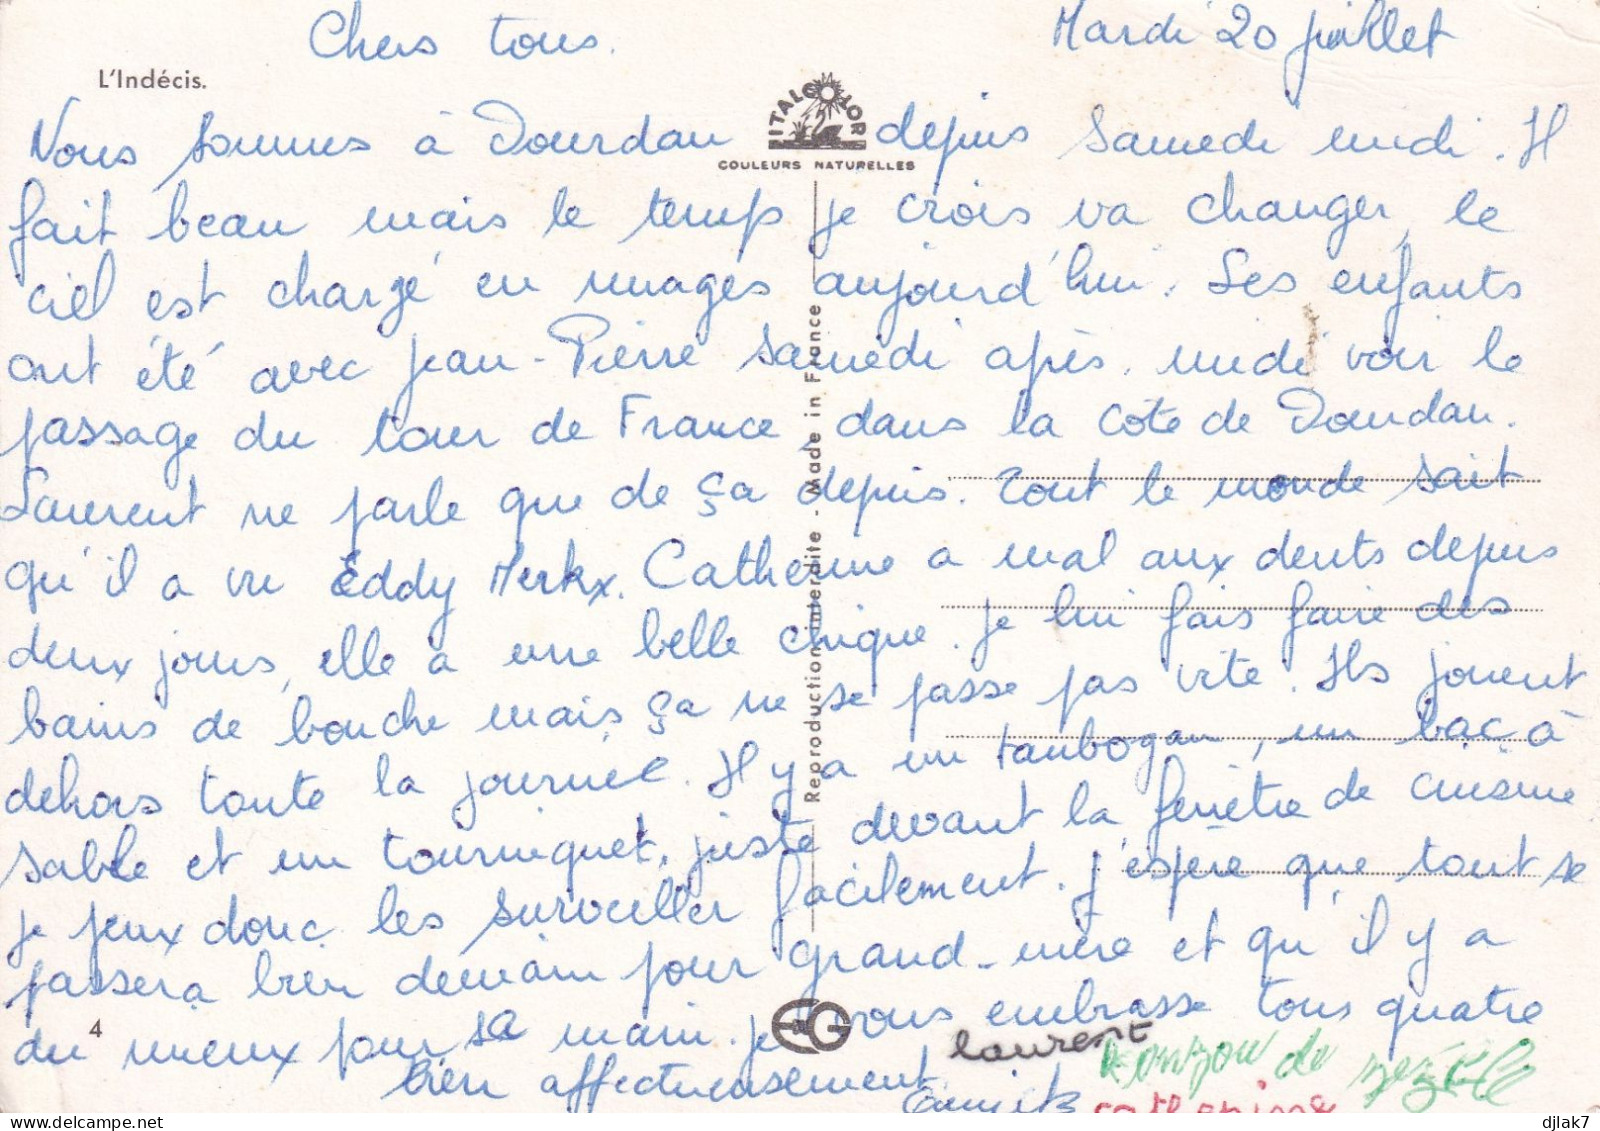 Chers tous.
Mardi 20 juillet
L'Indécis.
ITALCOLOR
COULEURS NATURELLES
Nous sommes à Dourdan depuis samedi midi. Il
fait beau mais le temps je crois va changer, le
ciel est chargé en nuages aujourd'hui. Les enfants
ont été avec Jean-Pierre samedi après. midi voir le
passage du tour de France dans la côte de Dourdan.
Laurent ne parle que de ça depuis. Tout le monde sait
qu'il a vu Eddy Merkx. Catherine a mal aux dents depuis
deux jours, elle a une belle chique. Je lui fais faire des
bains de bouche mais ça ne se passe pas vite. Ils jouent
dehors toute la journée. Il y a un taubogan, un bac à
sable et un tourniquet, juste devant la fenêtre de cuisine
je peux donc les surveiller facilement. J'espère que tout se
passera bien demain pour grand-mère et qu'il y a
du mieux pour sa main. Je vous embrasse tous quatre
bien affectueusement
laurent
catherine
Reproduction interdite - Made in France
4
EG
djlak7
delcampe.net